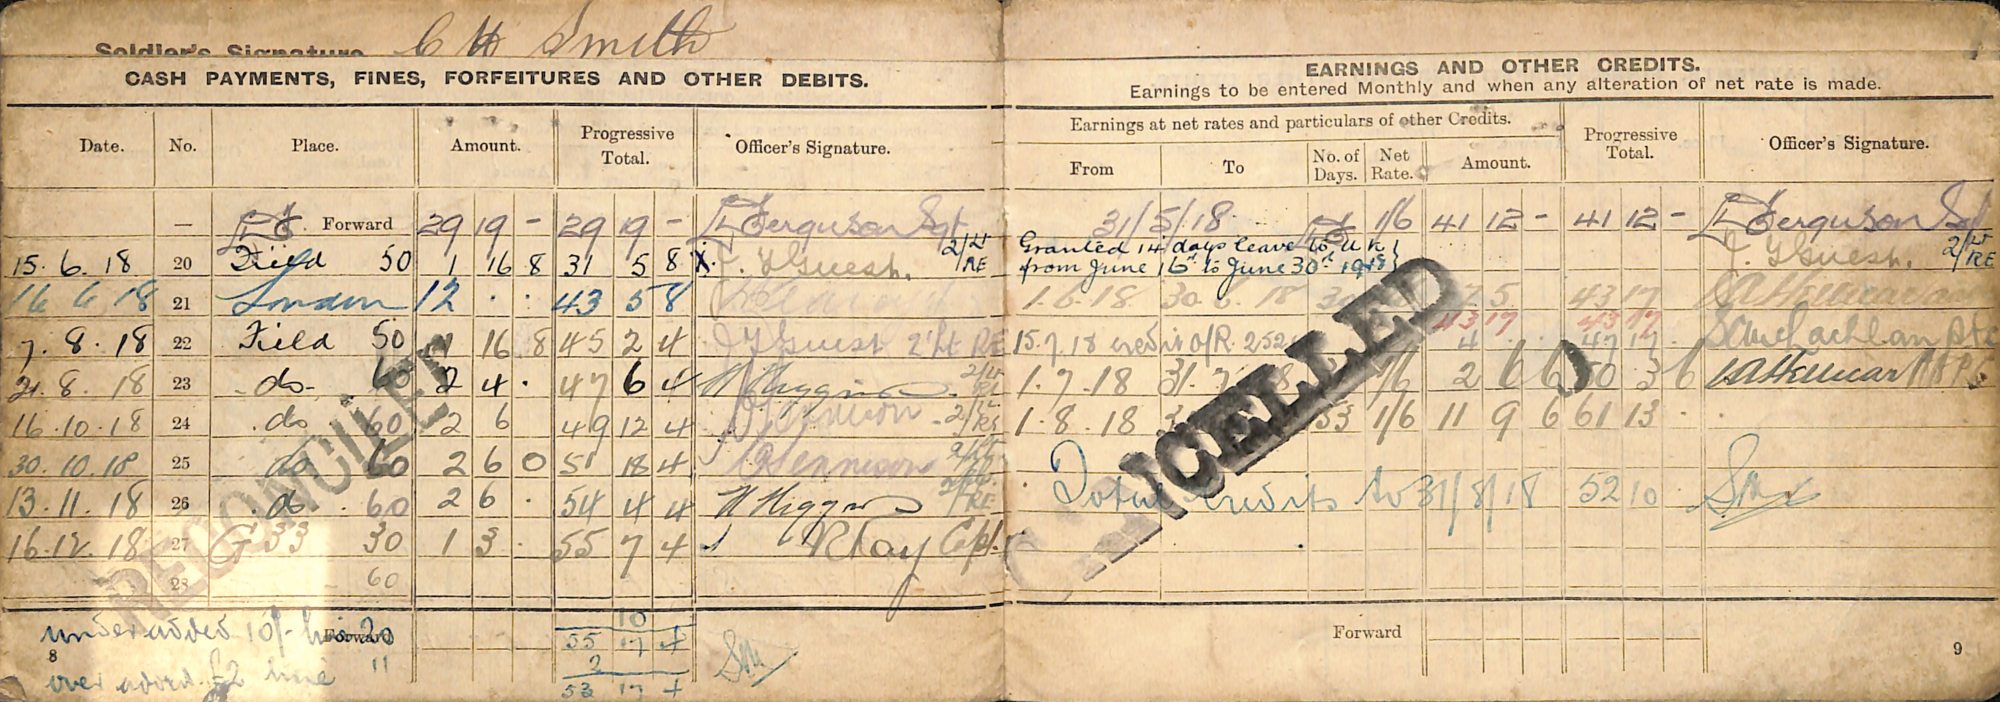 Soldier's Signature C H Smith
CASH PAYMENTS, FINES, FORFEITURES AND OTHER DEBITS.
Date. No. Place. Amount. Progressive Total. Officer's Signature.
— Forward 29 19 - 29 19 - Ferguson Sgt
15.6.18 20 Field 50 1 16 8 31 5 8 Guest. 2/Lt RE
16 6 18 21 London 12 . . 43 5 8
7.8.18 22 Field 50 1 16 8 45 2 4 Guest 2/Lt RE
21.8.18 23 do 60 2 4 . 47 6 4 W Higgins 2/Lt RE
16.10.18 24 do 60 2 6 49 12 4 2/Lt RE
30.10.18 25 do 60 2 6 0 51 18 4 2/Lt
13.11.18 26 do 60 2 6 . 54 4 4 W Higgins 2/Lt RE
16.12.18 27 G 33 30 1 3 . 55 7 4 Capt.
28 60
RECONCILED
under added 10/- line 20
Forward
over added £2 line 11
10
55 17 4
2
53 17 4
SM
8
EARNINGS AND OTHER CREDITS.
Earnings to be entered Monthly and when any alteration of net rate is made.
Earnings at net rates and particulars of other Credits. Progressive Total. Officer's Signature.
From To No. of Days. Net Rate. Amount.
31/5/18 1/6 41 12 - 41 12 - Ferguson Sgt
Granted 14 days leave to U K
from June 16th to June 30th 1918 Guest. 2/Lt RE
1.6.18 30.6.18 30 2 5 43 17
43 17 43 17
15.7.18 credit o/R. 252 4 47 17 Pte
1.7.18 31.7.18 1/6 2 6 6 50 3 6
1.8.18 53 1/6 11 9 6 61 13 .
Total credits to 31/8/18 52 10 SM
CANCELLED
Forward
9